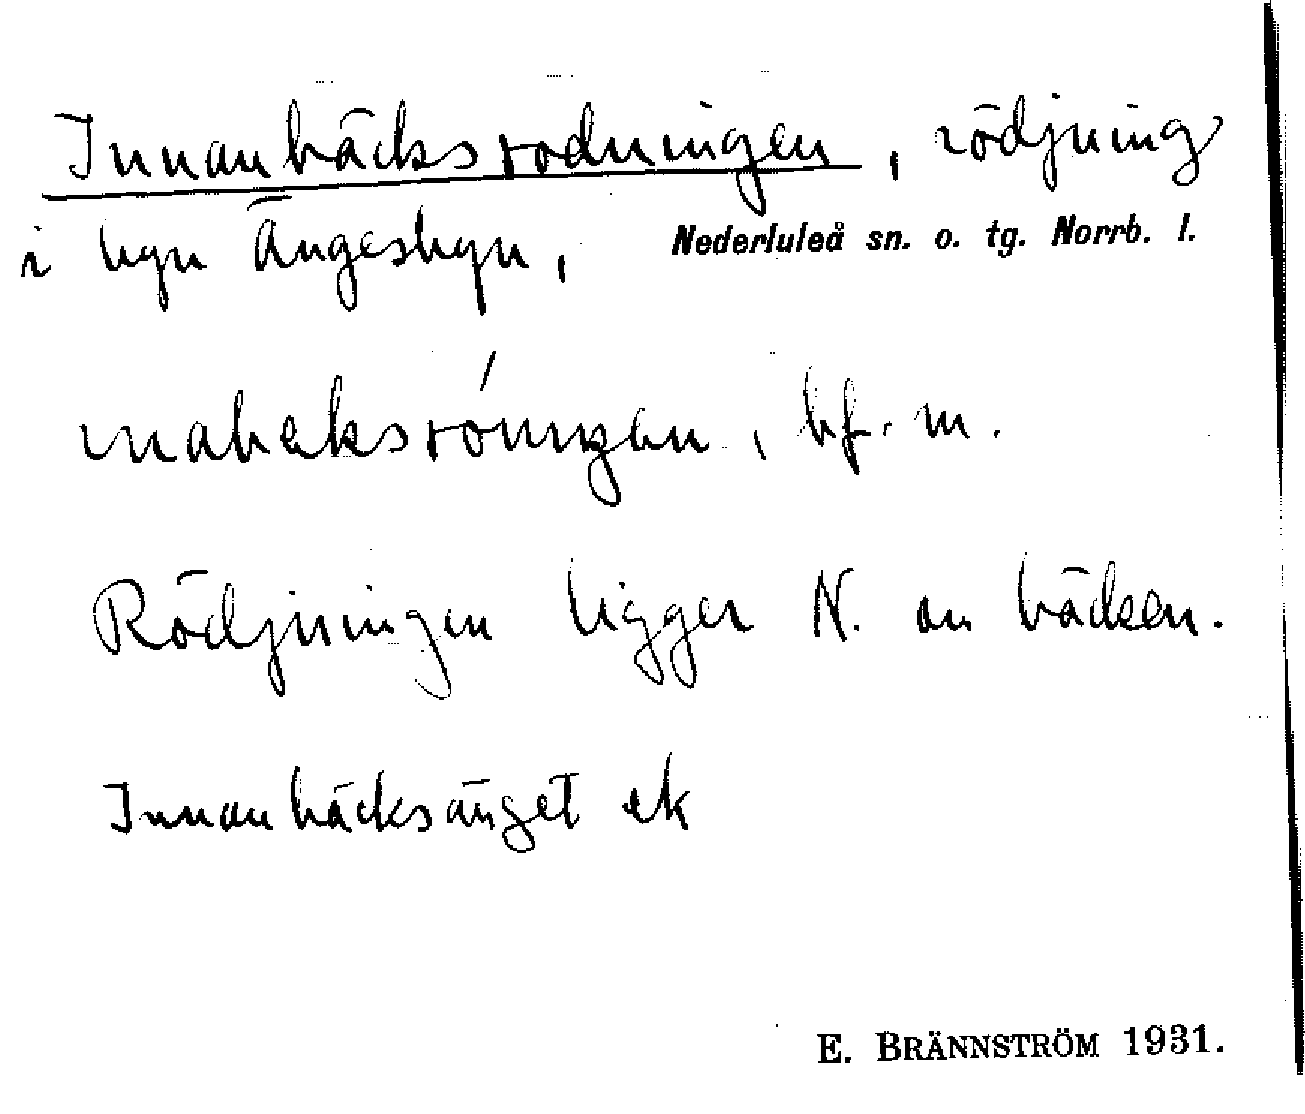 Innanbäcksrodningen, rödjning
i byn Ängesbyn, Nederluleå sn. o. tg. Norrb. l.
bf. m.
Rödjningen ligger N. om bäcken.
Innanbäcksänget ek
E. BRÄNNSTRÖM 1931.